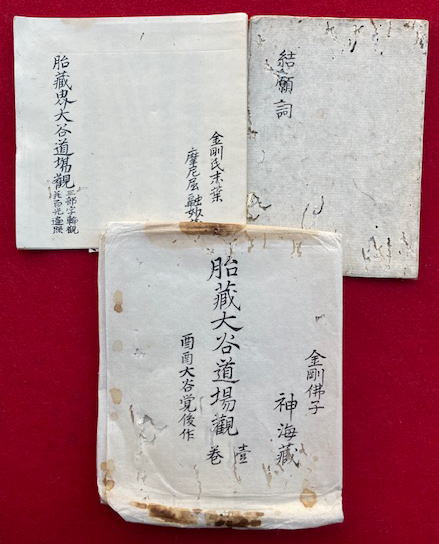 胎藏界大谷道場觀
三部字輪觀
金剛氏末葉
摩尼屋融妙
結願詞
金剛佛子
神海藏
胎藏大谷道場觀
壹卷
大谷覚俊作